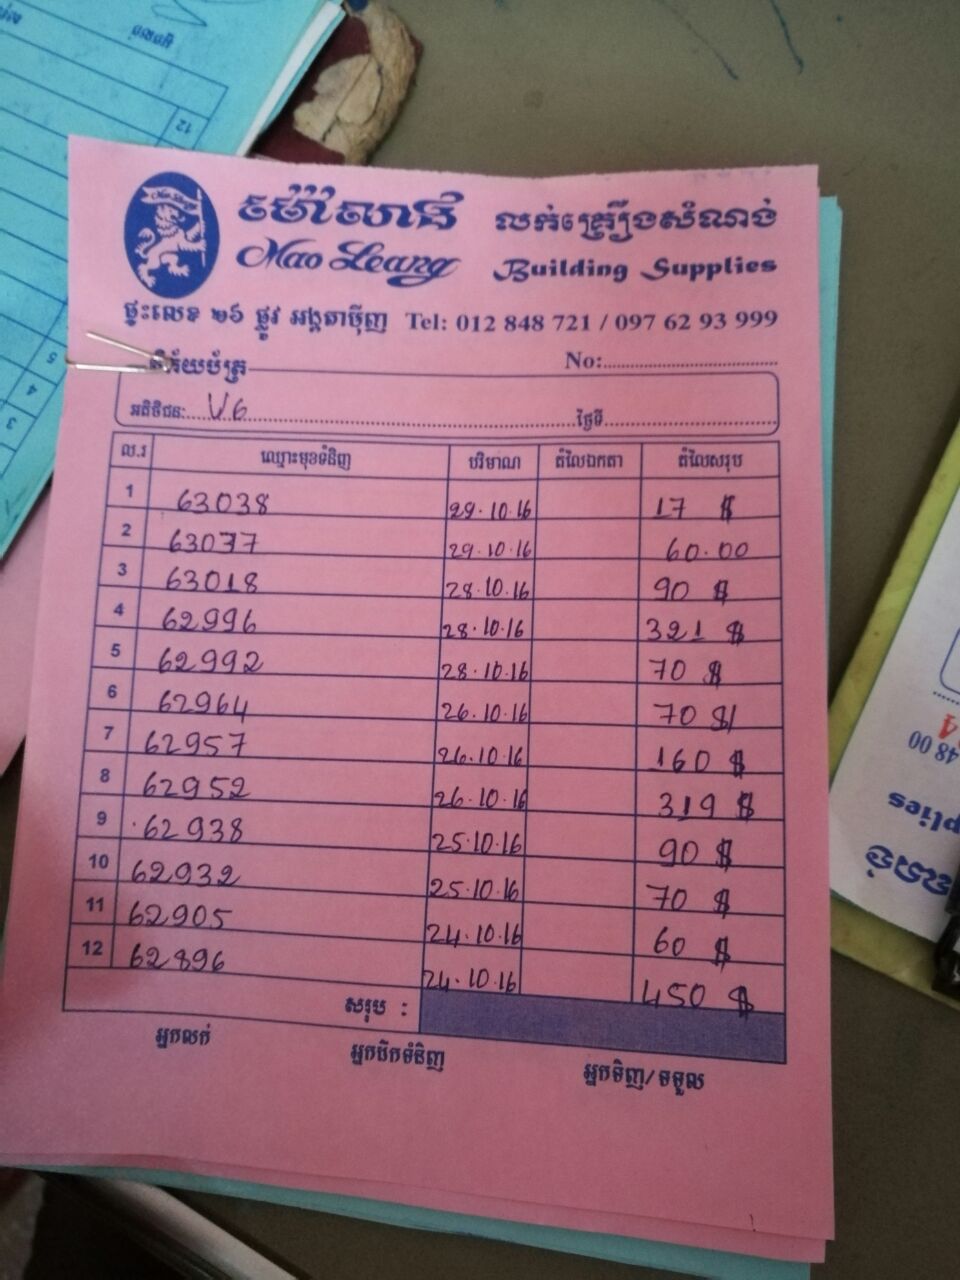 Mao Leang
ម៉ៅលាង លក់គ្រឿងសំណង់
Mao Leang Building Supplies
ផ្ទះលេខ ២៦ ផ្លូវ អង្គតាម៉ិញ Tel: 012 848 721 / 097 62 93 999
វិក័យប័ត្រ No:
អតិថិជន: V6 ថ្ងៃទី
ល.រ ឈ្មោះមុខទំនិញ បរិមាណ តំលៃឯកតា តំលៃសរុប
1 63038 29.10.16 17 $
2 63037 29.10.16 60.00
3 63018 28.10.16 90 $
4 62996 28.10.16 321 $
5 62992 28.10.16 70 $
6 62964 26.10.16 70 $
7 62957 26.10.16 160 $
8 62952 26.10.16 319 $
9 62938 25.10.16 90 $
10 62932 25.10.16 70 $
11 62905 24.10.16 60 $
12 62896 24.10.16 450 $
សរុប :
អ្នកលក់ អ្នកដឹកទំនិញ អ្នកទិញ/ទទួល
12
5
4
3
48 00